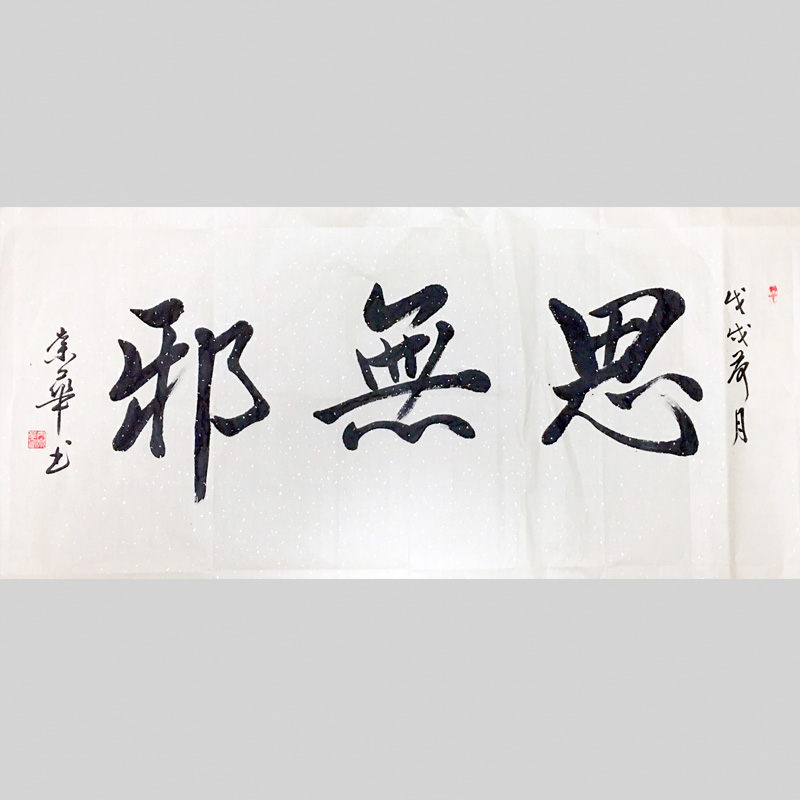 戊戌荷月
思無邪
崇華书